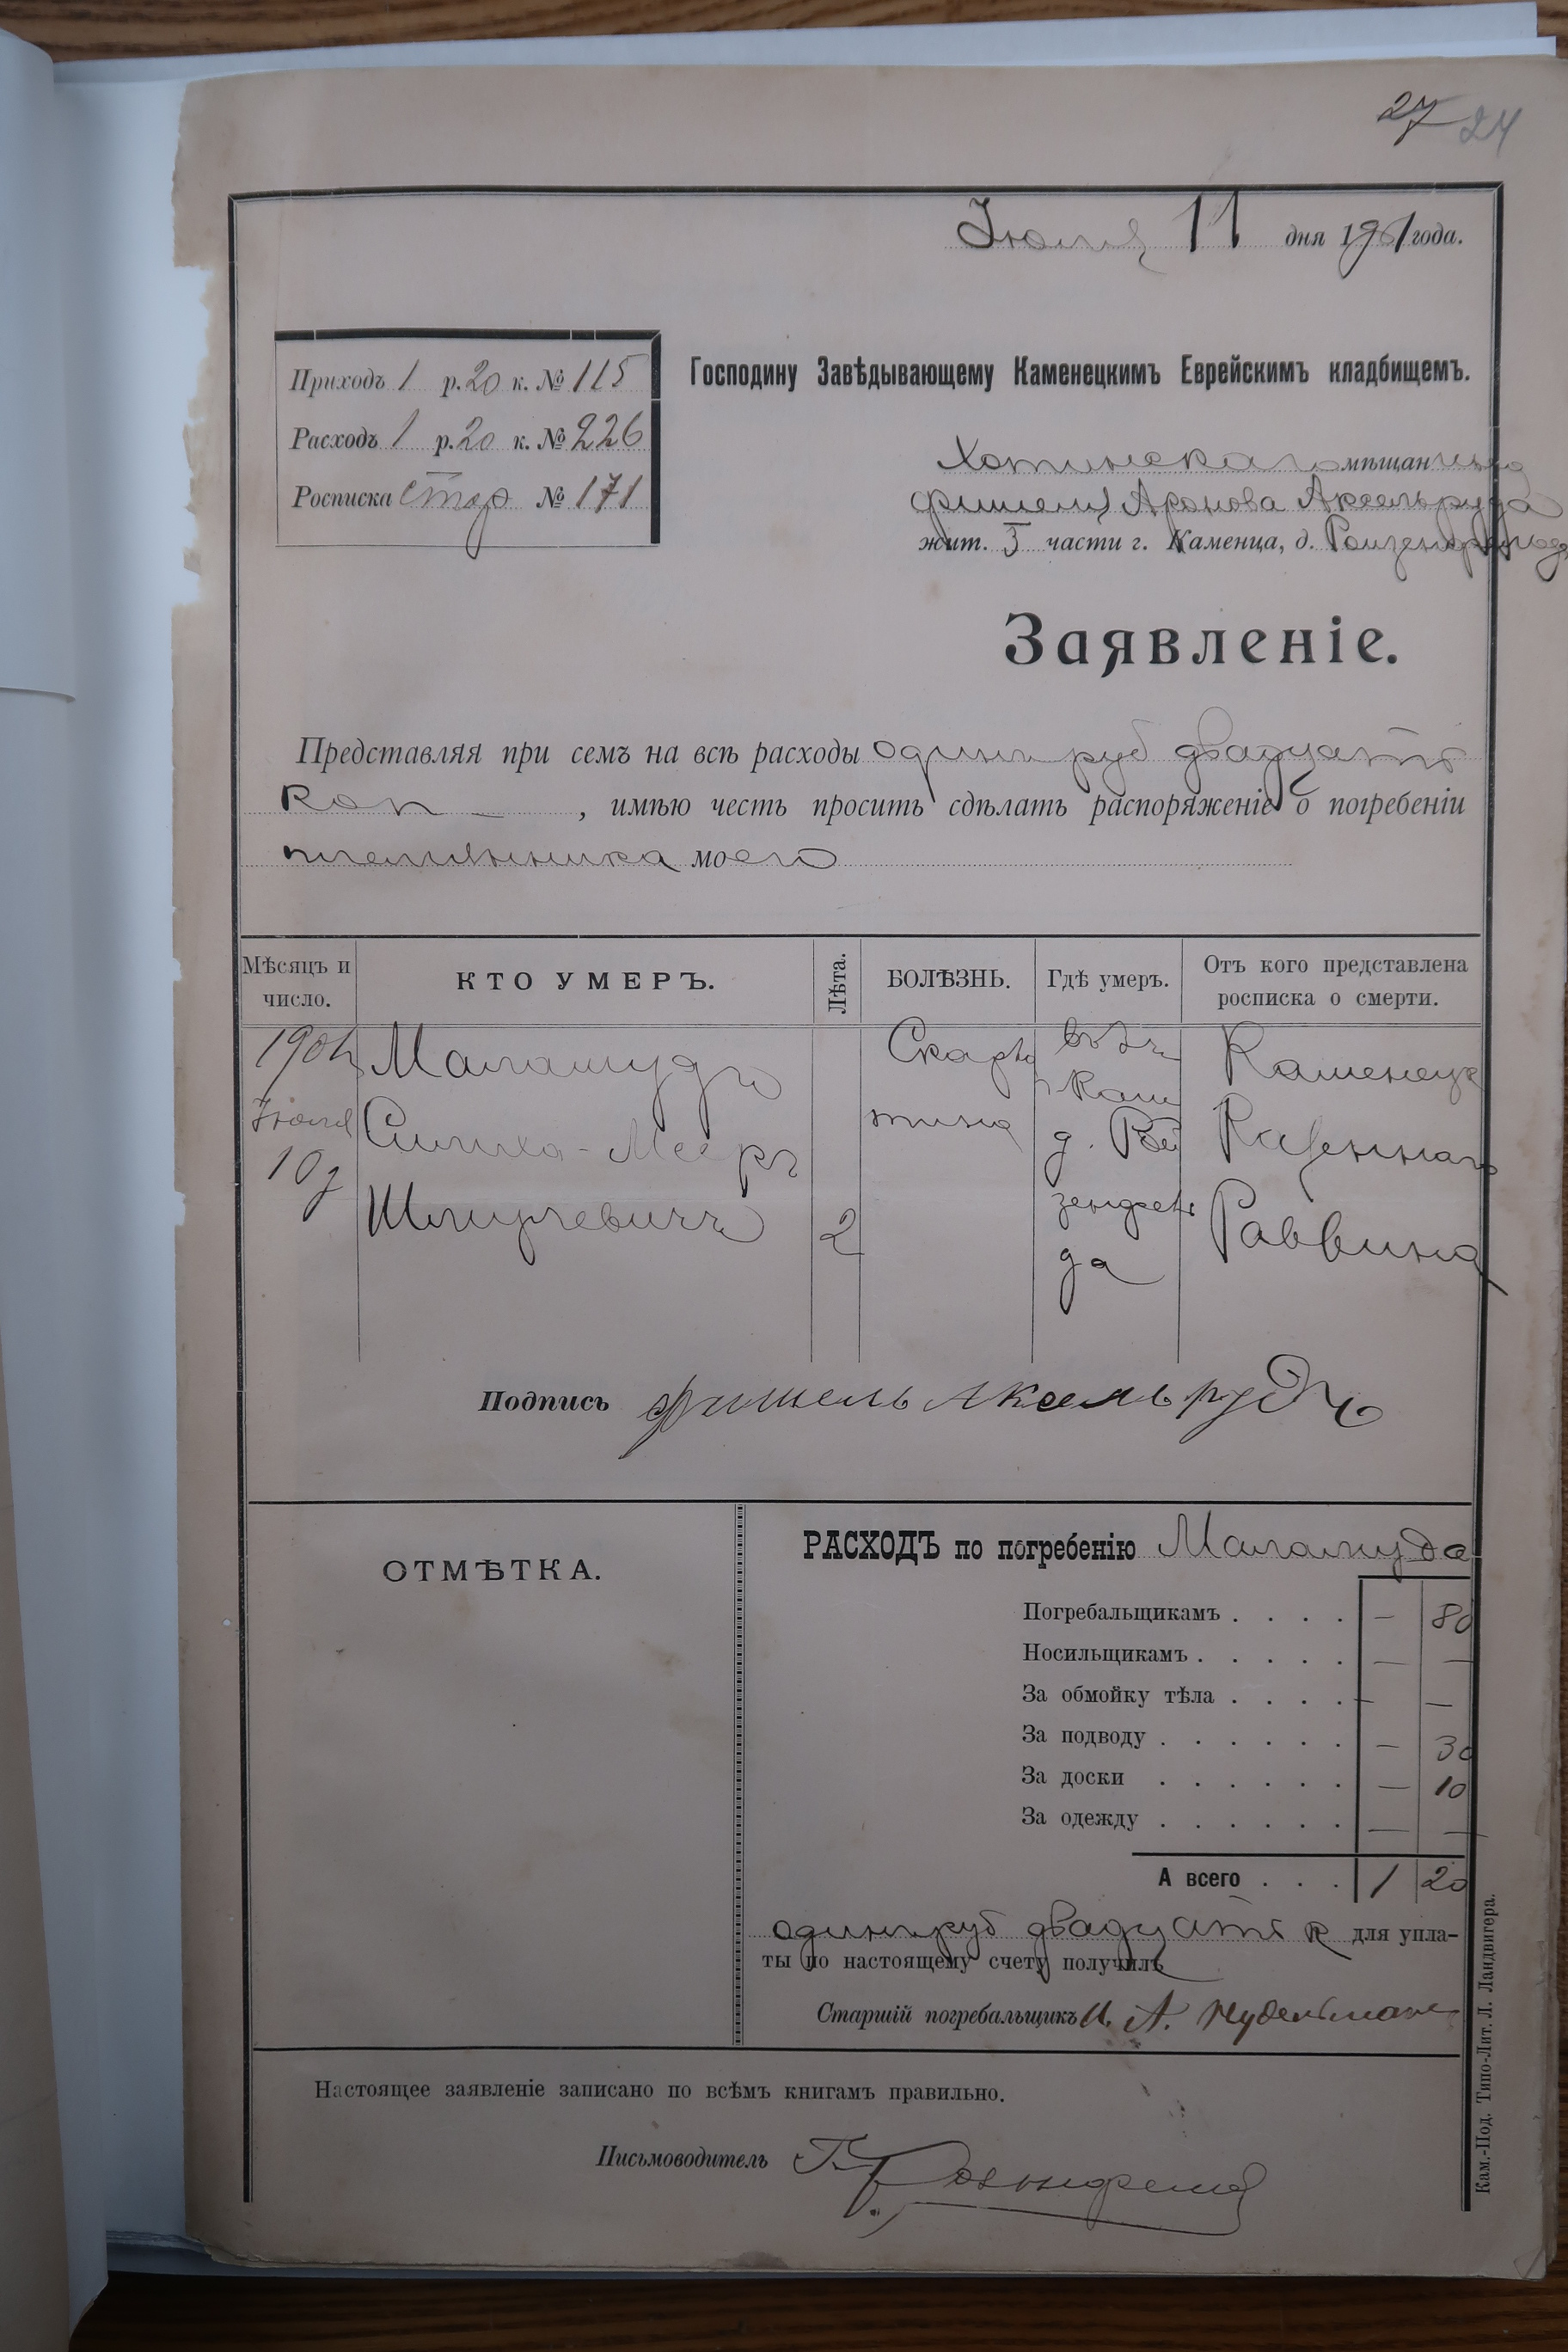 27 24
Іюля 11 дня 1901 года.
Приходъ 1 р. 20 к. № 115
Расходъ 1 р. 20 к. № 226
Росписка стар № 171
Господину Завѣдывающему Каменецкимъ Еврейскимъ кладбищемъ.
Хотинскаго мѣщанина
Фишеля Аронова Аксельруда
жит. I части г. Каменца, д. Ройзенфельда
Заявленіе.
Представляя при семъ на всѣ расходы одинъ руб двадцать
коп , имѣю честь просить сдѣлать распоряженіе о погребеніи
племянника моего
Мѣсяцъ и число. КТО УМЕРЪ. Лѣта. БОЛѢЗНЬ. Гдѣ умеръ. Отъ кого представлена росписка о смерти.
1901 Маламудъ Скарла въ г. Каменецк
Іюля Симха-Мееръ тина Кам Казеннаго
10 д. Рой
Шмулевичъ 2 зенфель Раввина
да
Подпись Фишель Аксельрудъ
ОТМѢТКА.
РАСХОДЪ по погребенію Маламуда
Погребальщикамъ . . . . — 80
Носильщикамъ . . . . . — —
За обмойку тѣла . . . . — —
За подводу . . . . . . — 30
За доски . . . . . . — 10
За одежду . . . . . . — —
А всего . . . 1 20
одинъ руб двадцать к для упла-
ты по настоящему счету получилъ
Старшій погребальщикъ И. А. Нудельманъ
Настоящее заявленіе записано по всѣмъ книгамъ правильно.
Письмоводитель
Кам.-Под. Типо-Лит. Л. Ландвигера.